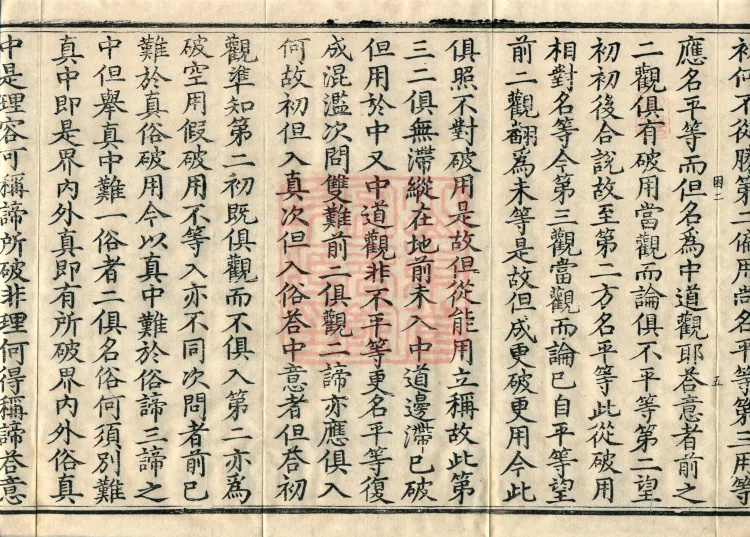 初何不從勝第二備用尚名平等第三用等
應名平等而但名為中道觀耶荅意者前之
二觀俱有破用當觀而論俱不平等第二望
初初後合說故至第二方名平等此從破用
相對名等今第三觀當觀而論已自平等望
前二觀翻為未等是故但成更破更用今此
俱照不對破用是故但從能用立稱故此第
三二俱無滯縱在地前未入中道邊滯已破
但用於中又中道觀非不平等更名平等復
成混濫次問雙難前二俱觀二諦亦應俱入
何故初但入真次但入俗荅中意者但荅初
觀準知第二初既俱觀而不俱入第二亦為
破空用假破用不等入亦不同次問者前已
難於真俗破用今以真中難於俗諦三諦之
中但舉真中難一俗者二俱名俗何須別難
真中即是界內外真即有所破界內外俗真
中是理容可稱諦所破非理何得稱諦荅意
因二
五